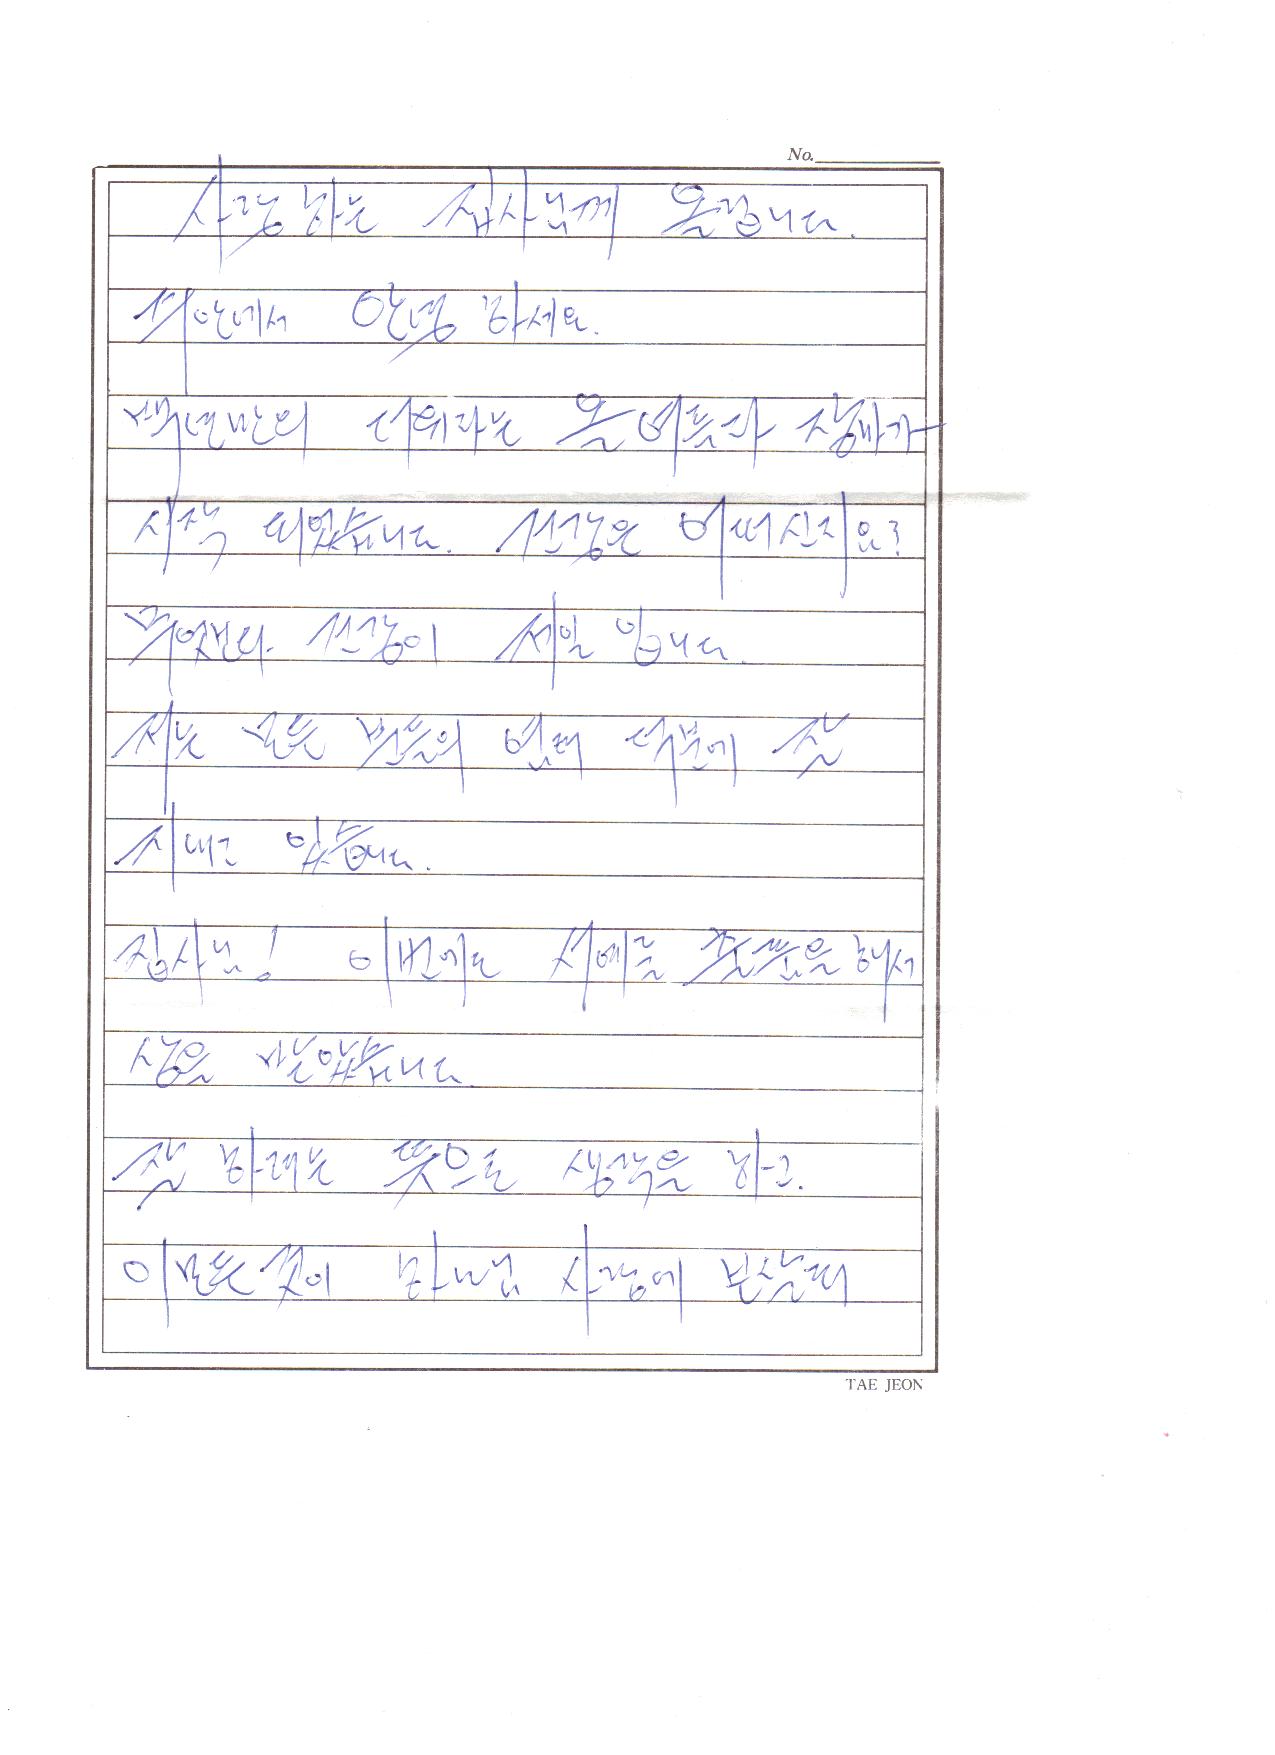 No.
사랑하는 집사님께 올립니다.
주안에서 안녕 하세요.
백년만의 더위라는 올 여름과 장마가
시작 되었습니다. 건강은 어떠신지요?
무엇보다 건강이 제일 입니다.
저는 모든 분들의 염려 덕분에 잘
지내고 있습니다.
집사님! 이번에도 서예를 출품을 해서
상을 받았습니다.
잘 하라는 뜻으로 생각을 하고.
이 모든 것이 하나님 사랑에
TAE JEON